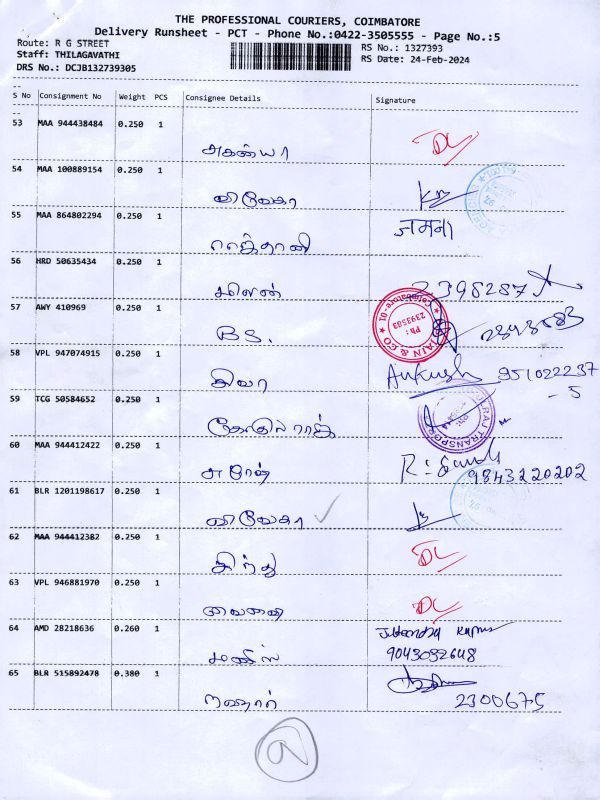 THE PROFESSIONAL COURIERS, COIMBATORE
Delivery Runsheet - PCT - Phone No.:0422-3505555 - Page No.:5
Route: R G STREET
RS No.: 1327393
Staff: THILAGAVATHI
RS Date: 24-Feb-2024
DRS No.: DCJB132739305
S No Consignment No Weight PCS Consignee Details Signature
53 MAA 944438484 0.250 1
அகன்யா DL
54 MAA 100889154 0.250 1
விவேகா
55 MAA 864802294 0.250 1 जमना
56 HRD 50635434 0.250 1
2398287
57 AWY 410969 0.250 1
B.S.
JAIN & CO Coimbatore-01 Ph: 2393503
58 VPL 947074915 0.250 1
சிவா Ankush 951022237
-5
59 TCG 50584652 0.250 1
60 MAA 944412422 0.250 1
9843220202
61 BLR 1201198617 0.250 1
விவேகா
62 MAA 944412382 0.250 1
இந்து DL
63 VPL 946881970 0.250 1
DL
64 AMD 28218636 0.260 1
9043092648
65 BLR 515892478 0.380 1
2300675